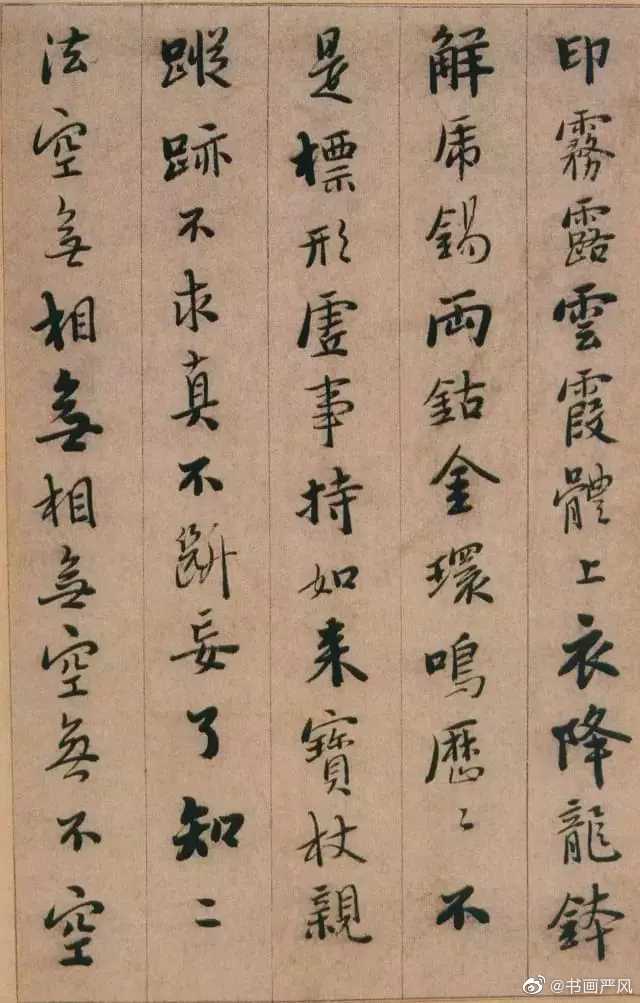 印霧露雲霞體上衣降龍鉢
解虎錫兩鈷金環鳴歷〻不
是標形虛事持如来寶杖親
蹤跡不求真不斷妄了知二
法空無相無相無空無不空
@书画严风